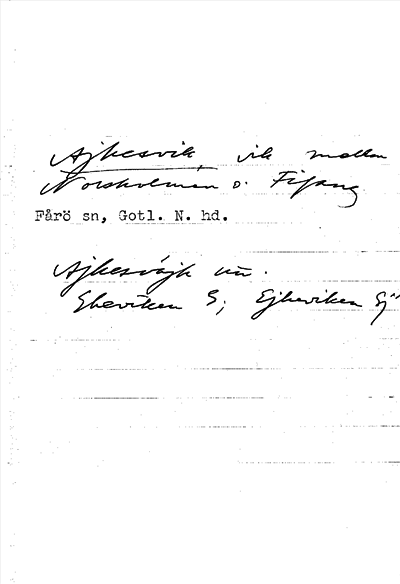 Ajkesvik, vik mellan
Norsholmen o. Fifang
Fårö sn, Gotl. N. hd.
Ajkesvájk
Ekeviken G; Ejkeviken Gj